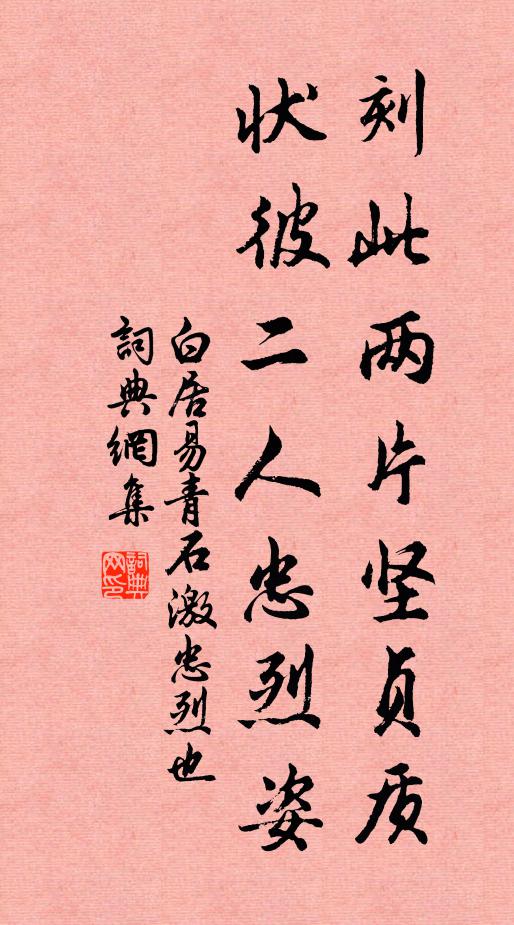 刻此两片坚贞质
状彼二人忠烈姿
白居易青石激忠烈也
詞典網集
詞典网印